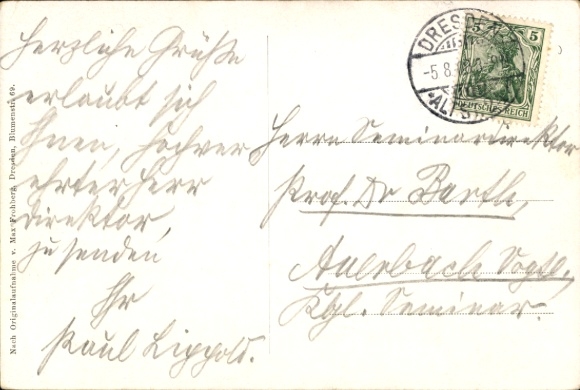 Herzliche Grüße
erlaubt sich
Ihnen, hochver
ehrter Herr
Direktor,
zu senden
Ihr
Paul Lippold.
Nach Originalaufnahme v. Max Frohberg, Dresden, Blumenstr. 69.
DRESDEN
-5.8.
*ALTST.
5
DEUTSCHES REICH
Herrn Seminardirektor
Prof. Dr Barth,
Auerbach Vogtl.
Kgl. Seminar.